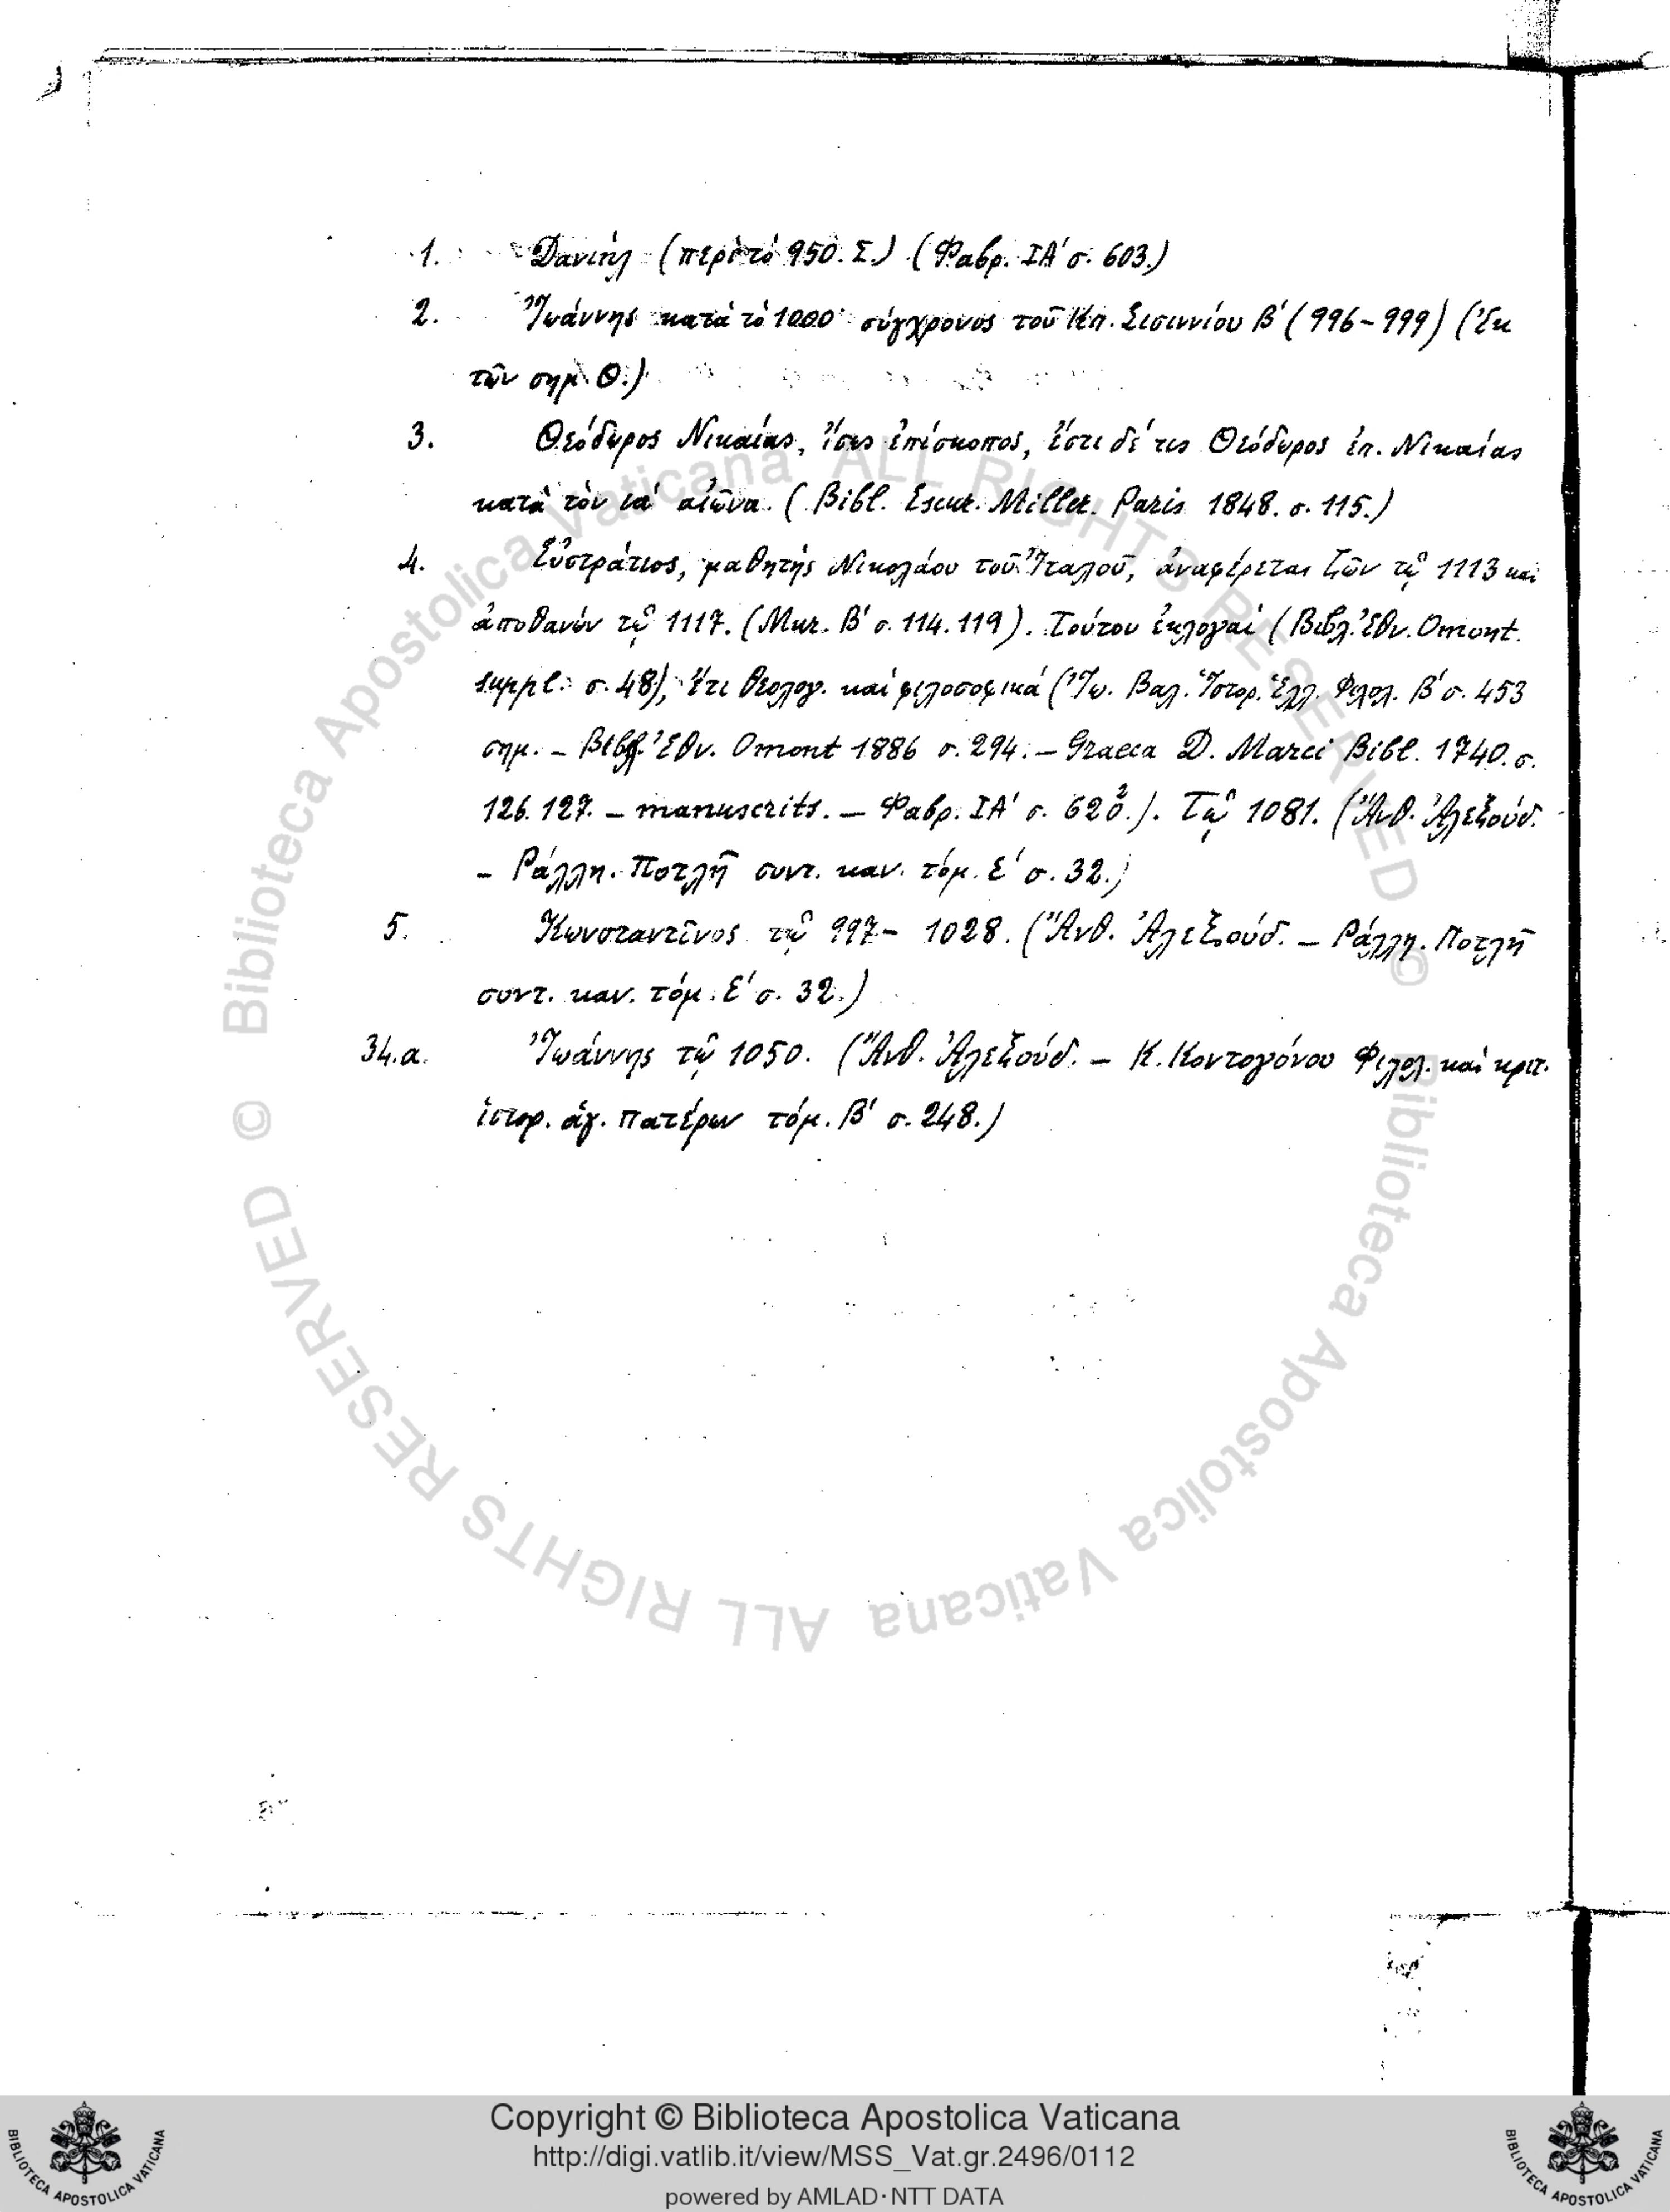 1. Δανιήλ (περὶ τὸ 950. Σ.) (Φαβρ. ΙΑ' σ. 603.)
2. Ἰωάννης κατὰ τὸ 1000 σύγχρονος τοῦ Κπ. Σισιννίου Β' (996-999) (Ἐκ
τῶν σημ. Θ.)
3. Θεόδωρος Νικαίας, ἴσως ἐπίσκοπος, ἔστι δέ τις Θεόδωρος ἐπ. Νικαίας
κατὰ τὸν ια' αἰῶνα. (Bibl. Escur. Miller. Paris 1848. σ. 115.)
4. Εὐστράτιος, μαθητής Νικολάου τοῦ Ἰταλοῦ, ἀναφέρεται ζῶν τῷ 1113 καὶ
ἀποθανὼν τῷ 1117. (Mur. Β' σ. 114. 119). Τούτου ἐκλογαί (Βιβλ. Ἐθν. Omont.
suppl. σ. 48), ἔτι θεολογ. καὶ φιλοσοφικά (Ἰω. Βαλ. Ἱστορ. Ἑλλ. Φιλολ. Β' σ. 453
σημ. – Βιβλ. Ἐθν. Omont 1886 σ. 294. – Graeca D. Marci Bibl. 1740. σ.
126. 127. – manuscrits. – Φαβρ. ΙΑ' σ. 620.). Τῷ 1081. (Ἄνθ. Ἀλεξούδ.
– Ράλλη. Ποτλῆ συντ. καν. τόμ. Ε' σ. 32.)
5. Κωνσταντῖνος τῷ 997- 1028. (Ἄνθ. Ἀλεξούδ. – Ράλλη. Ποτλῆ
συντ. καν. τόμ. Ε' σ. 32.)
34.α. Ἰωάννης τῷ 1050. (Ἄνθ. Ἀλεξούδ. – Κ. Κοντογόνου Φιλολ. καὶ κριτ.
ἱστορ. ἁγ. Πατέρων τόμ. Β' σ. 248.)
© Biblioteca Apostolica Vaticana ALL RIGHTS RESERVED © Biblioteca Apostolica Vaticana ALL RIGHTS RESERVED
Copyright © Biblioteca Apostolica Vaticana
http://digi.vatlib.it/view/MSS_Vat.gr.2496/0112
powered by AMLAD·NTT DATA
BIBLIOTECA APOSTOLICA VATICANA
BIBLIOTECA APOSTOLICA VATICANA